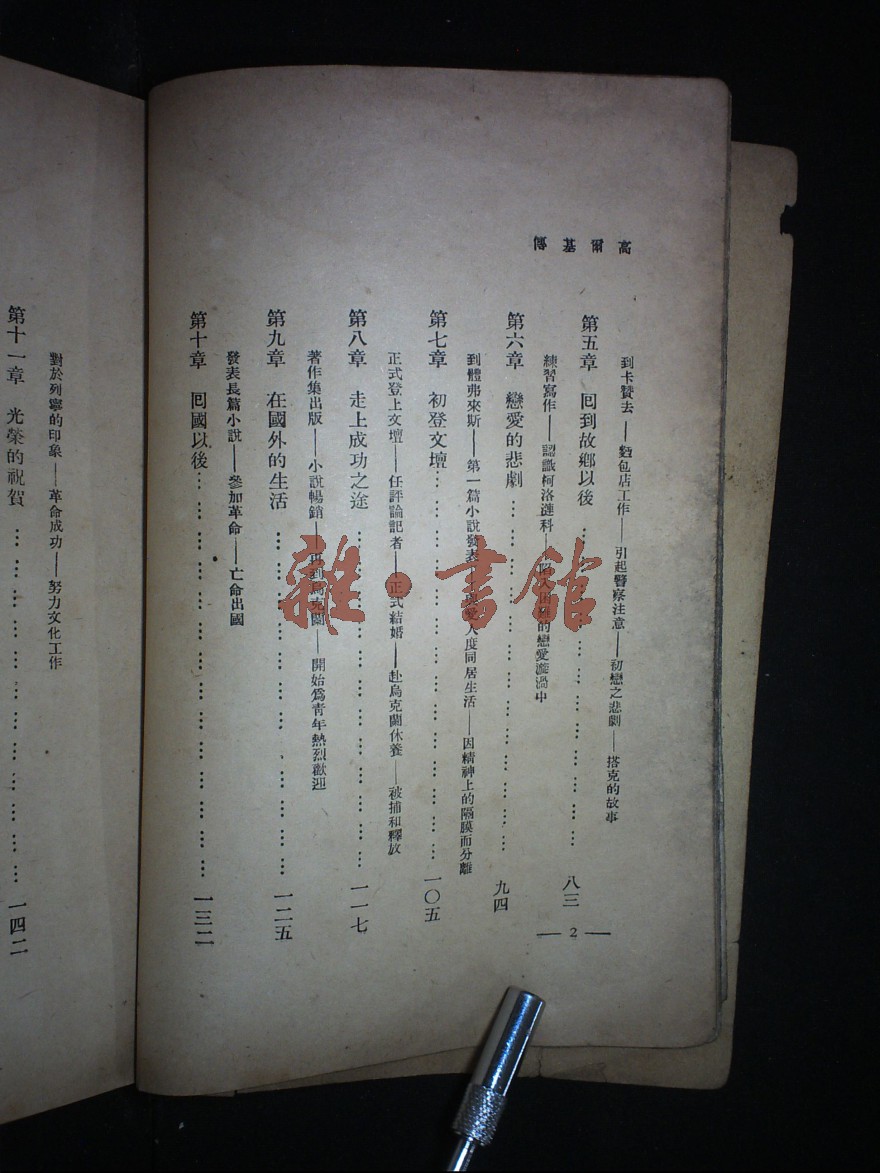 高爾基傳
到卡贊去——麵包店工作——引起警察注意——初戀之悲劇——搭克的故事
第五章 回到故鄉以後…………八三
練習寫作——認識柯洛漣科——的戀愛漩渦中
第六章 戀愛的悲劇…………九四
到體弗來斯——第一篇小說發表——與愛人度同居生活——因精神上的隔膜而分離
第七章 初登文壇…………一〇五
正式登上文壇——任評論記者——正式結婚——赴烏克蘭休養——被捕和釋放
第八章 走上成功之途…………一一七
著作集出版——小說暢銷——再到烏克蘭——開始爲青年熱烈歡迎
第九章 在國外的生活…………一二五
發表長篇小說——參加革命——亡命出國
第十章 回國以後…………一三二
對於列寧的印象——革命成功——努力文化工作
第十一章 光榮的祝賀…………一四二
— 2 —
雜·書館